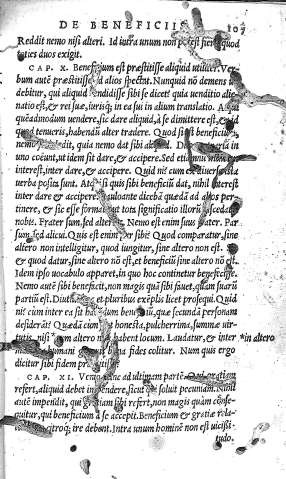 DE BENEFICIIS 107
Reddit nemo nisi alteri. Id intra unum non potest fieri, quod
duos exigit.
CAP. X. Beneficium est præstitisse aliquid utiliter. Ver
bum autē præstitisse ad alios spectat. Nunquid nō demens ui
debitur, qui aliquid uendidisse sibi se dicet? quia uenditio alie
natio est, & rei suæ, iurisq; in ea sui in alium translatio. Atqui
quēadmodum uendere, sic dare aliquid, à se dimittere est, & id
quod tenueris, habendū alter tradere. Quod si est beneficiū,
nemo dedit, quia nemo dat sibi
uno coëunt, ut idem sit dare, & accipere. Sed etiamnū multum
interest, inter dare, & accipere. Quid ni? cum ex diuerso ista
uerba posita sunt. Atqui si quis sibi beneficiū dat, nihil interest
inter dare & accipere. Paulo ante dicebā quædā ad alios per-
tinere, & sic esse formata, ut tota significatio illorū discedat
nobis. Frater sum, sed alterius. Nemo est enim suus frater. Par
sum, sed alicui. Quis est enim par sibi? Quod comparatur, sine
altero non intelligitur, quod iungitur, sine altero non est.
& quod datur, sine altero nō est, et beneficiū sine altero nō est.
Idem ipso uocabulo apparet, in quo hoc continetur benefecisse.
Nemo autē sibi beneficit, non magis quā sibi fauet, quàm suarū
partiū est. Diutius et pluribus exēplis licet prosequi. Quid
ni? cùm inter ea sit habendum beneficiū, quæ secundā personam
desiderāt? Quædā cùm sint honesta, pulcherrima, summæ uir-
tutis, nisi *cum altero non habent locum. Laudatur, & inter *in altero
maxima humani generis bona fides colitur. Num quis ergo
dicitur sibi fidem præstitisse?
CAP. XI. Venio nunc ad ultimam partē. Qui gratiam
refert, aliquid debet impendere, sicut qui soluit pecuniam. Nihil
autē impendit, qui gratiam sibi refert, non magis quàm conse-
quitur, qui beneficium à se accepit. Beneficium & gratiæ rela-
ultro citroq; ire debent. Intra unum hominē non est uicissi
tudo.